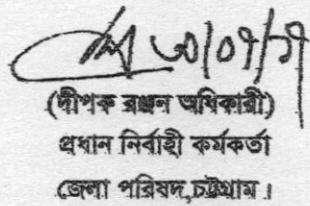 ৩০/০৭/১৭
(দীপক রঞ্জন অধিকারী)
প্রধান নির্বাহী কর্মকর্তা
জেলা পরিষদ,চট্টগ্রাম।